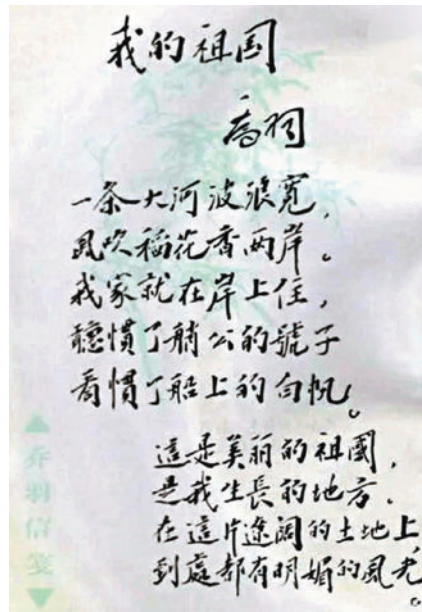 我的祖国
乔羽
一条大河波浪宽，
風吹稻花香两岸。
我家就在岸上住，
聽慣了艄公的號子
看慣了船上的白帆。
這是美丽的祖國，
是我生長的地方，
在這片遼阔的土地上，
到處都有明媚的風光。
乔羽信箋